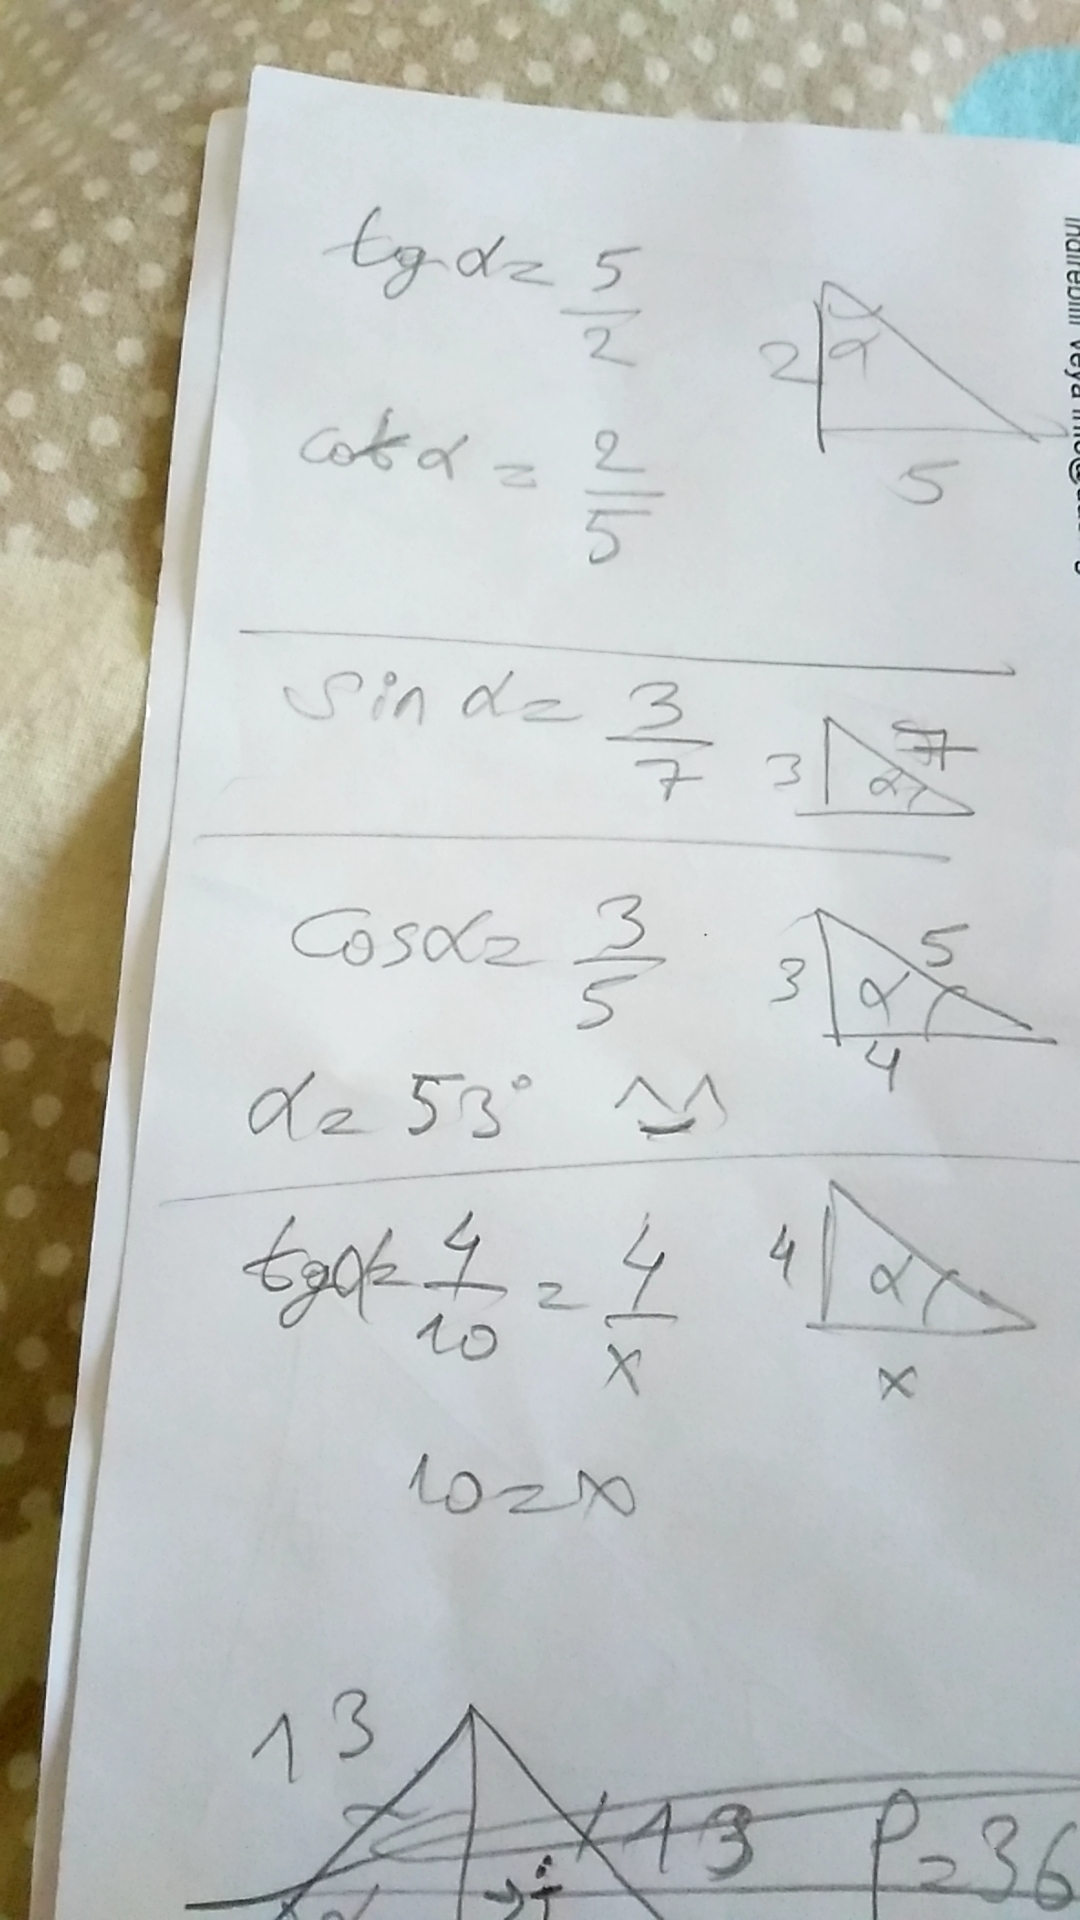 tgα = 5/2
2 α
5
cotα = 2/5
sin α = 3/7
3 7 α
cosα = 3/5
3 5 α
4
α = 53°
tgα = 4/10 = 4/x
4 α
x
10 = x
13
13 P = 36